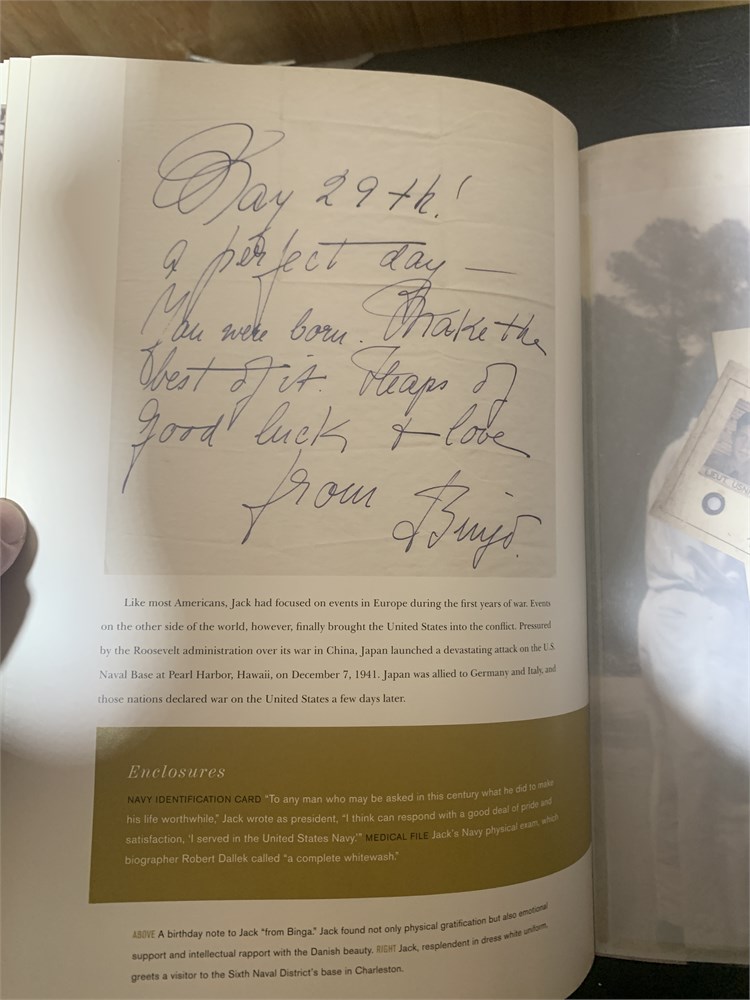 May 29th!
a perfect day —
You were born. Make the
best of it. Heaps of
good luck & love
from Binga.
Like most Americans, Jack had focused on events in Europe during the first years of war. Events
on the other side of the world, however, finally brought the United States into the conflict. Pressured
by the Roosevelt administration over its war in China, Japan launched a devastating attack on the U.S.
Naval Base at Pearl Harbor, Hawaii, on December 7, 1941. Japan was allied to Germany and Italy, and
those nations declared war on the United States a few days later.
Enclosures
NAVY IDENTIFICATION CARD “To any man who may be asked in this century what he did to make
his life worthwhile,” Jack wrote as president, “I think can respond with a good deal of pride and
satisfaction, ‘I served in the United States Navy.’” MEDICAL FILE Jack’s Navy physical exam, which
biographer Robert Dallek called “a complete whitewash.”
ABOVE A birthday note to Jack “from Binga.” Jack found not only physical gratification but also emotional
support and intellectual rapport with the Danish beauty. RIGHT Jack, resplendent in dress white uniform,
greets a visitor to the Sixth Naval District’s base in Charleston.
LIEUT USN